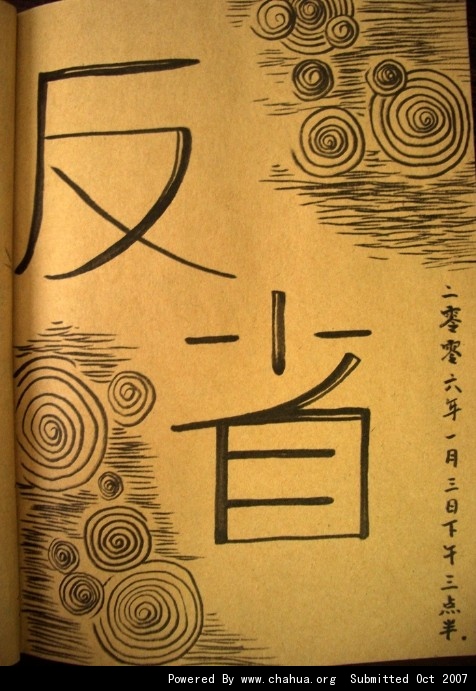 反
省
二零零六年一月三日下午三点半.
Powered By www.chahua.org  Submitted Oct 2007